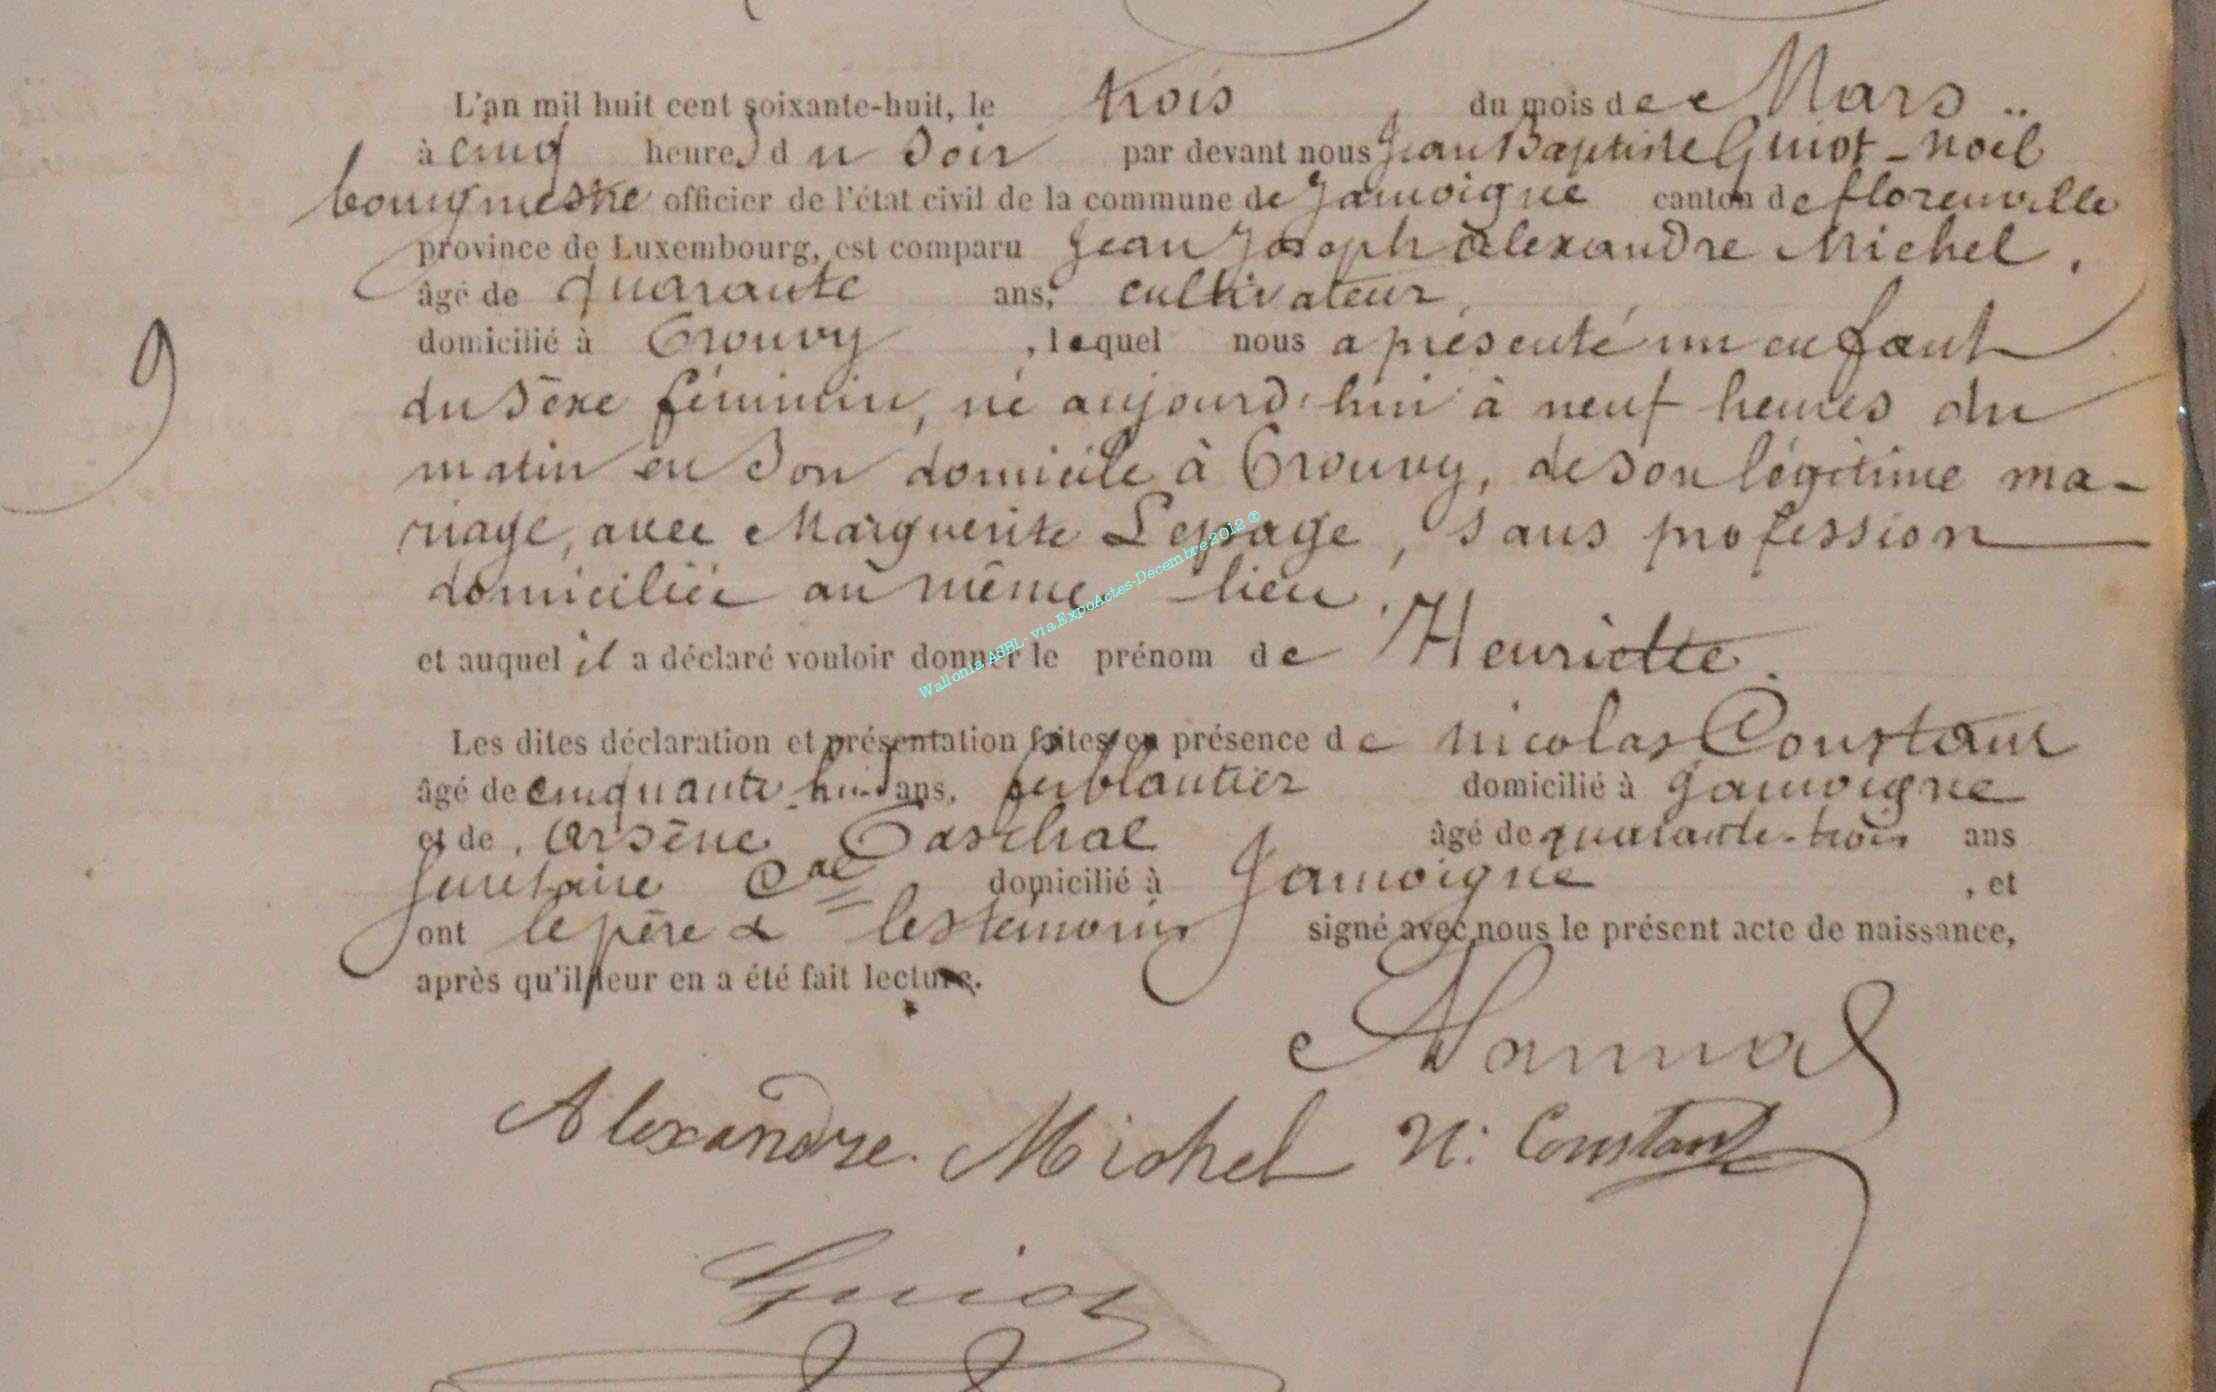 L'an mil huit cent soixante-huit, le trois du mois de Mars
à cinq heures du Soir par devant nous Jean Baptiste Guiot - Noël
bourgmestre officier de l'état civil de la commune de Jamoigne canton de florenville
province de Luxembourg, est comparu Jean Joseph Alexandre Michel,
âgé de quarante ans, cultivateur
domicilié à Prouvy, lequel nous a présenté un enfant
9
du Sèxe féminin, né aujourd'hui à neuf heures du
matin en Son domicile à Prouvy, de Son légitime ma-
riage, avec Marguerite Lepage, sans profession
domiciliée au même lieu.
et auquel il a déclaré vouloir donner le prénom de Henriette.
Wallonia ASBL - via ExpoActes-Decembre 2012 ®
Les dites déclaration et présentation faites en présence de nicolas Constant
âgé de cinquante-huit ans, ferblantier domicilié à Jamoigne
et de, Arsène Paschal âgé de quarante-trois ans
Secrétaire Cal domicilié à Jamoigne, et
ont le père & les témoins signé avec nous le présent acte de naissance,
après qu'il leur en a été fait lecture.
Alexandre Michel N: Constant
Guiot